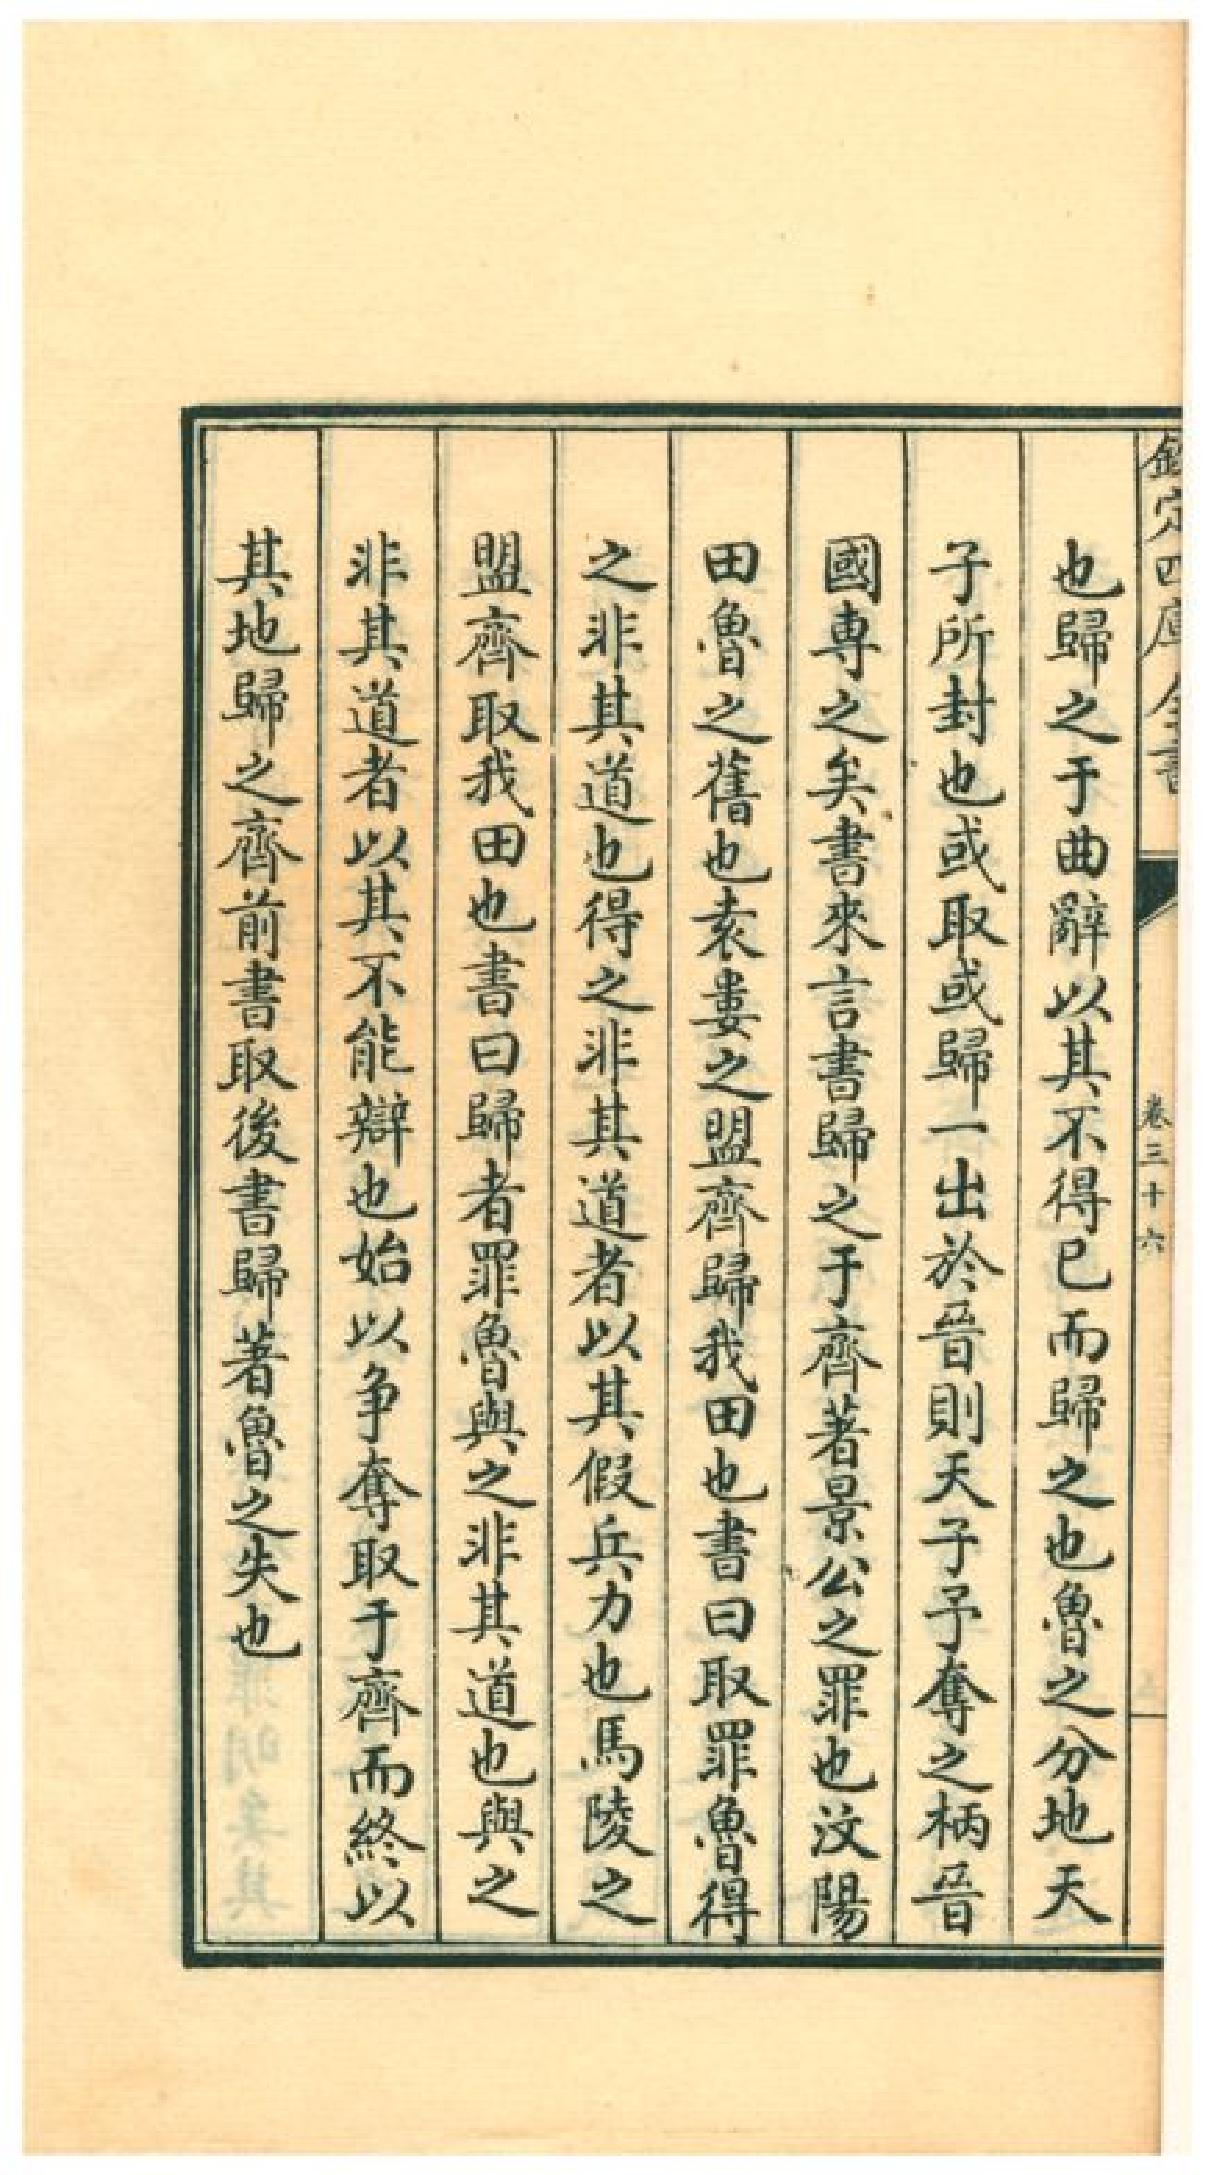 欽定四庫全書
卷三十六
也歸之于曲辭以其不得已而歸之也魯之分地天
子所封也或取或歸一出於晉則天子予奪之柄晉
國専之矣書來言書歸之于齊著景公之罪也汶陽
田魯之舊也袁婁之盟齊歸我田也書曰取罪魯得
之非其道也得之非其道者以其假兵力也馬陵之
盟齊取我田也書曰歸者罪魯與之非其道也與之
非其道者以其不能辯也始以争奪取于齊而終以
其地歸之齊前書取後書歸著魯之失也